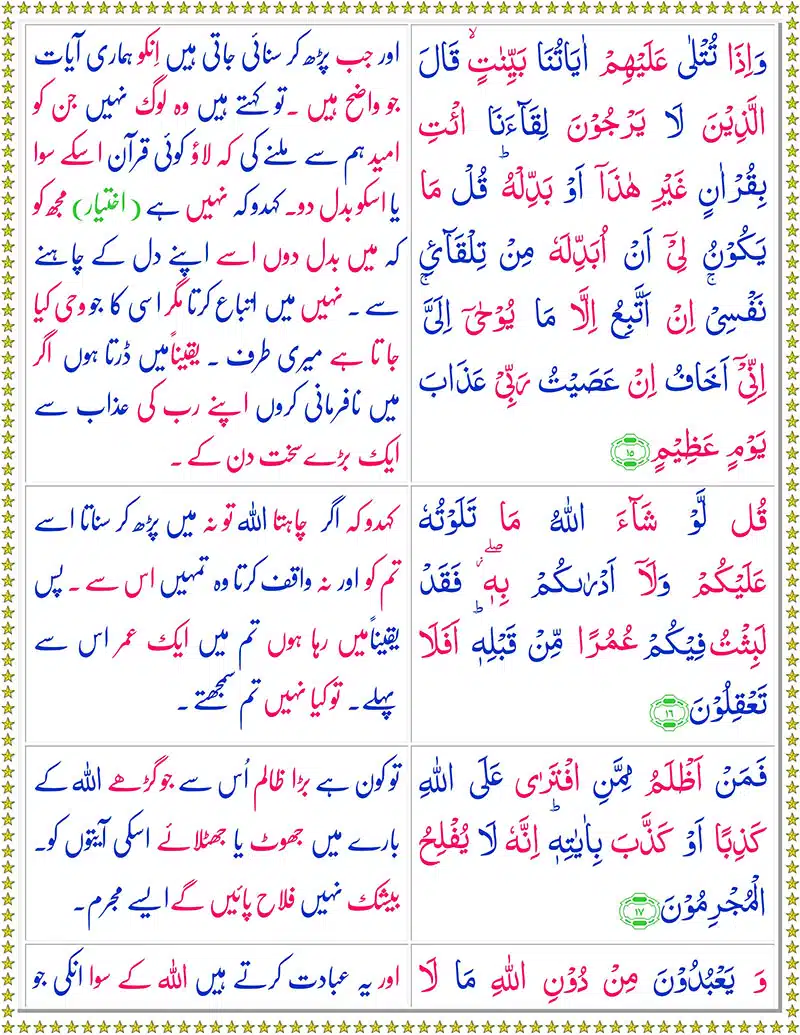 وَاِذَا تُتْلٰى عَلَيْهِمْ اٰيَاتُنَا بَيِّنٰتٍ ۙ قَالَ
الَّذِيْنَ لَا يَرْجُوْنَ لِقَآءَنَا ائْتِ
بِقُرْاٰنٍ غَيْرِ هٰذَآ اَوْ بَدِّلْهُ ؕ قُلْ مَا
يَكُوْنُ لِيْٓ اَنْ اُبَدِّلَهٗ مِنْ تِلْقَآئِ
نَفْسِيْ ۚ اِنْ اَتَّبِعُ اِلَّا مَا يُوْحٰٓى اِلَيَّ
اِنِّيْٓ اَخَافُ اِنْ عَصَيْتُ رَبِّيْ عَذَابَ
يَوْمٍ عَظِيْمٍ ١٥
اور جب پڑھ کر سنائی جاتی ہیں اِنکو ہماری آیات
جو واضح ہیں ۔ تو کہتے ہیں وہ لوگ نہیں جن کو
امید ہم سے ملنے کی کہ لاؤ کوئی قرآن اسکے سوا
یا اسکو بدل دو۔ کہدو کہ نہیں ہے (اختیار) مجھ کو
کہ میں بدل دوں اسے اپنے دل کے چاہنے
سے ۔ نہیں میں اتباع کرتا مگر اسی کا جو وحی کیا
جاتا ہے میری طرف ۔ یقیناً میں ڈرتا ہوں اگر
میں نافرمانی کروں اپنے رب کی عذاب سے
ایک بڑے سخت دن کے ۔
قُل لَّوْ شَآءَ اللّٰهُ مَا تَلَوْتُهٗ
عَلَيْكُمْ وَلَآ اَدْرٰىكُمْ بِهٖ ۖ فَقَدْ
لَبِثْتُ فِيْكُمْ عُمُرًا مِّنْ قَبْلِهٖ ؕ اَفَلَا
تَعْقِلُوْنَ ١٦
کہدو کہ اگر چاہتا اللہ تو نہ میں پڑھ کر سناتا اسے
تم کو اور نہ واقف کرتا وہ تمہیں اس سے ۔ پس
یقیناً میں رہا ہوں تم میں ایک عمر اس سے
پہلے۔ تو کیا نہیں تم سمجھتے ۔
فَمَنْ اَظْلَمُ مِمَّنِ افْتَرٰى عَلَى اللّٰهِ
كَذِبًا اَوْ كَذَّبَ بِاٰيٰتِهٖ ؕ اِنَّهٗ لَا يُفْلِحُ
الْمُجْرِمُوْنَ ١٧
تو کون ہے بڑا ظالم اُس سے جو گڑھے اللہ کے
بارے میں جھوٹ یا جھٹلائے اسکی آیتوں کو۔
بیشک نہیں فلاح پائیں گے ایسے مجرم۔
وَ يَعْبُدُوْنَ مِنْ دُوْنِ اللّٰهِ مَا لَا
اور یہ عبادت کرتے ہیں اللہ کے سوا انکی جو